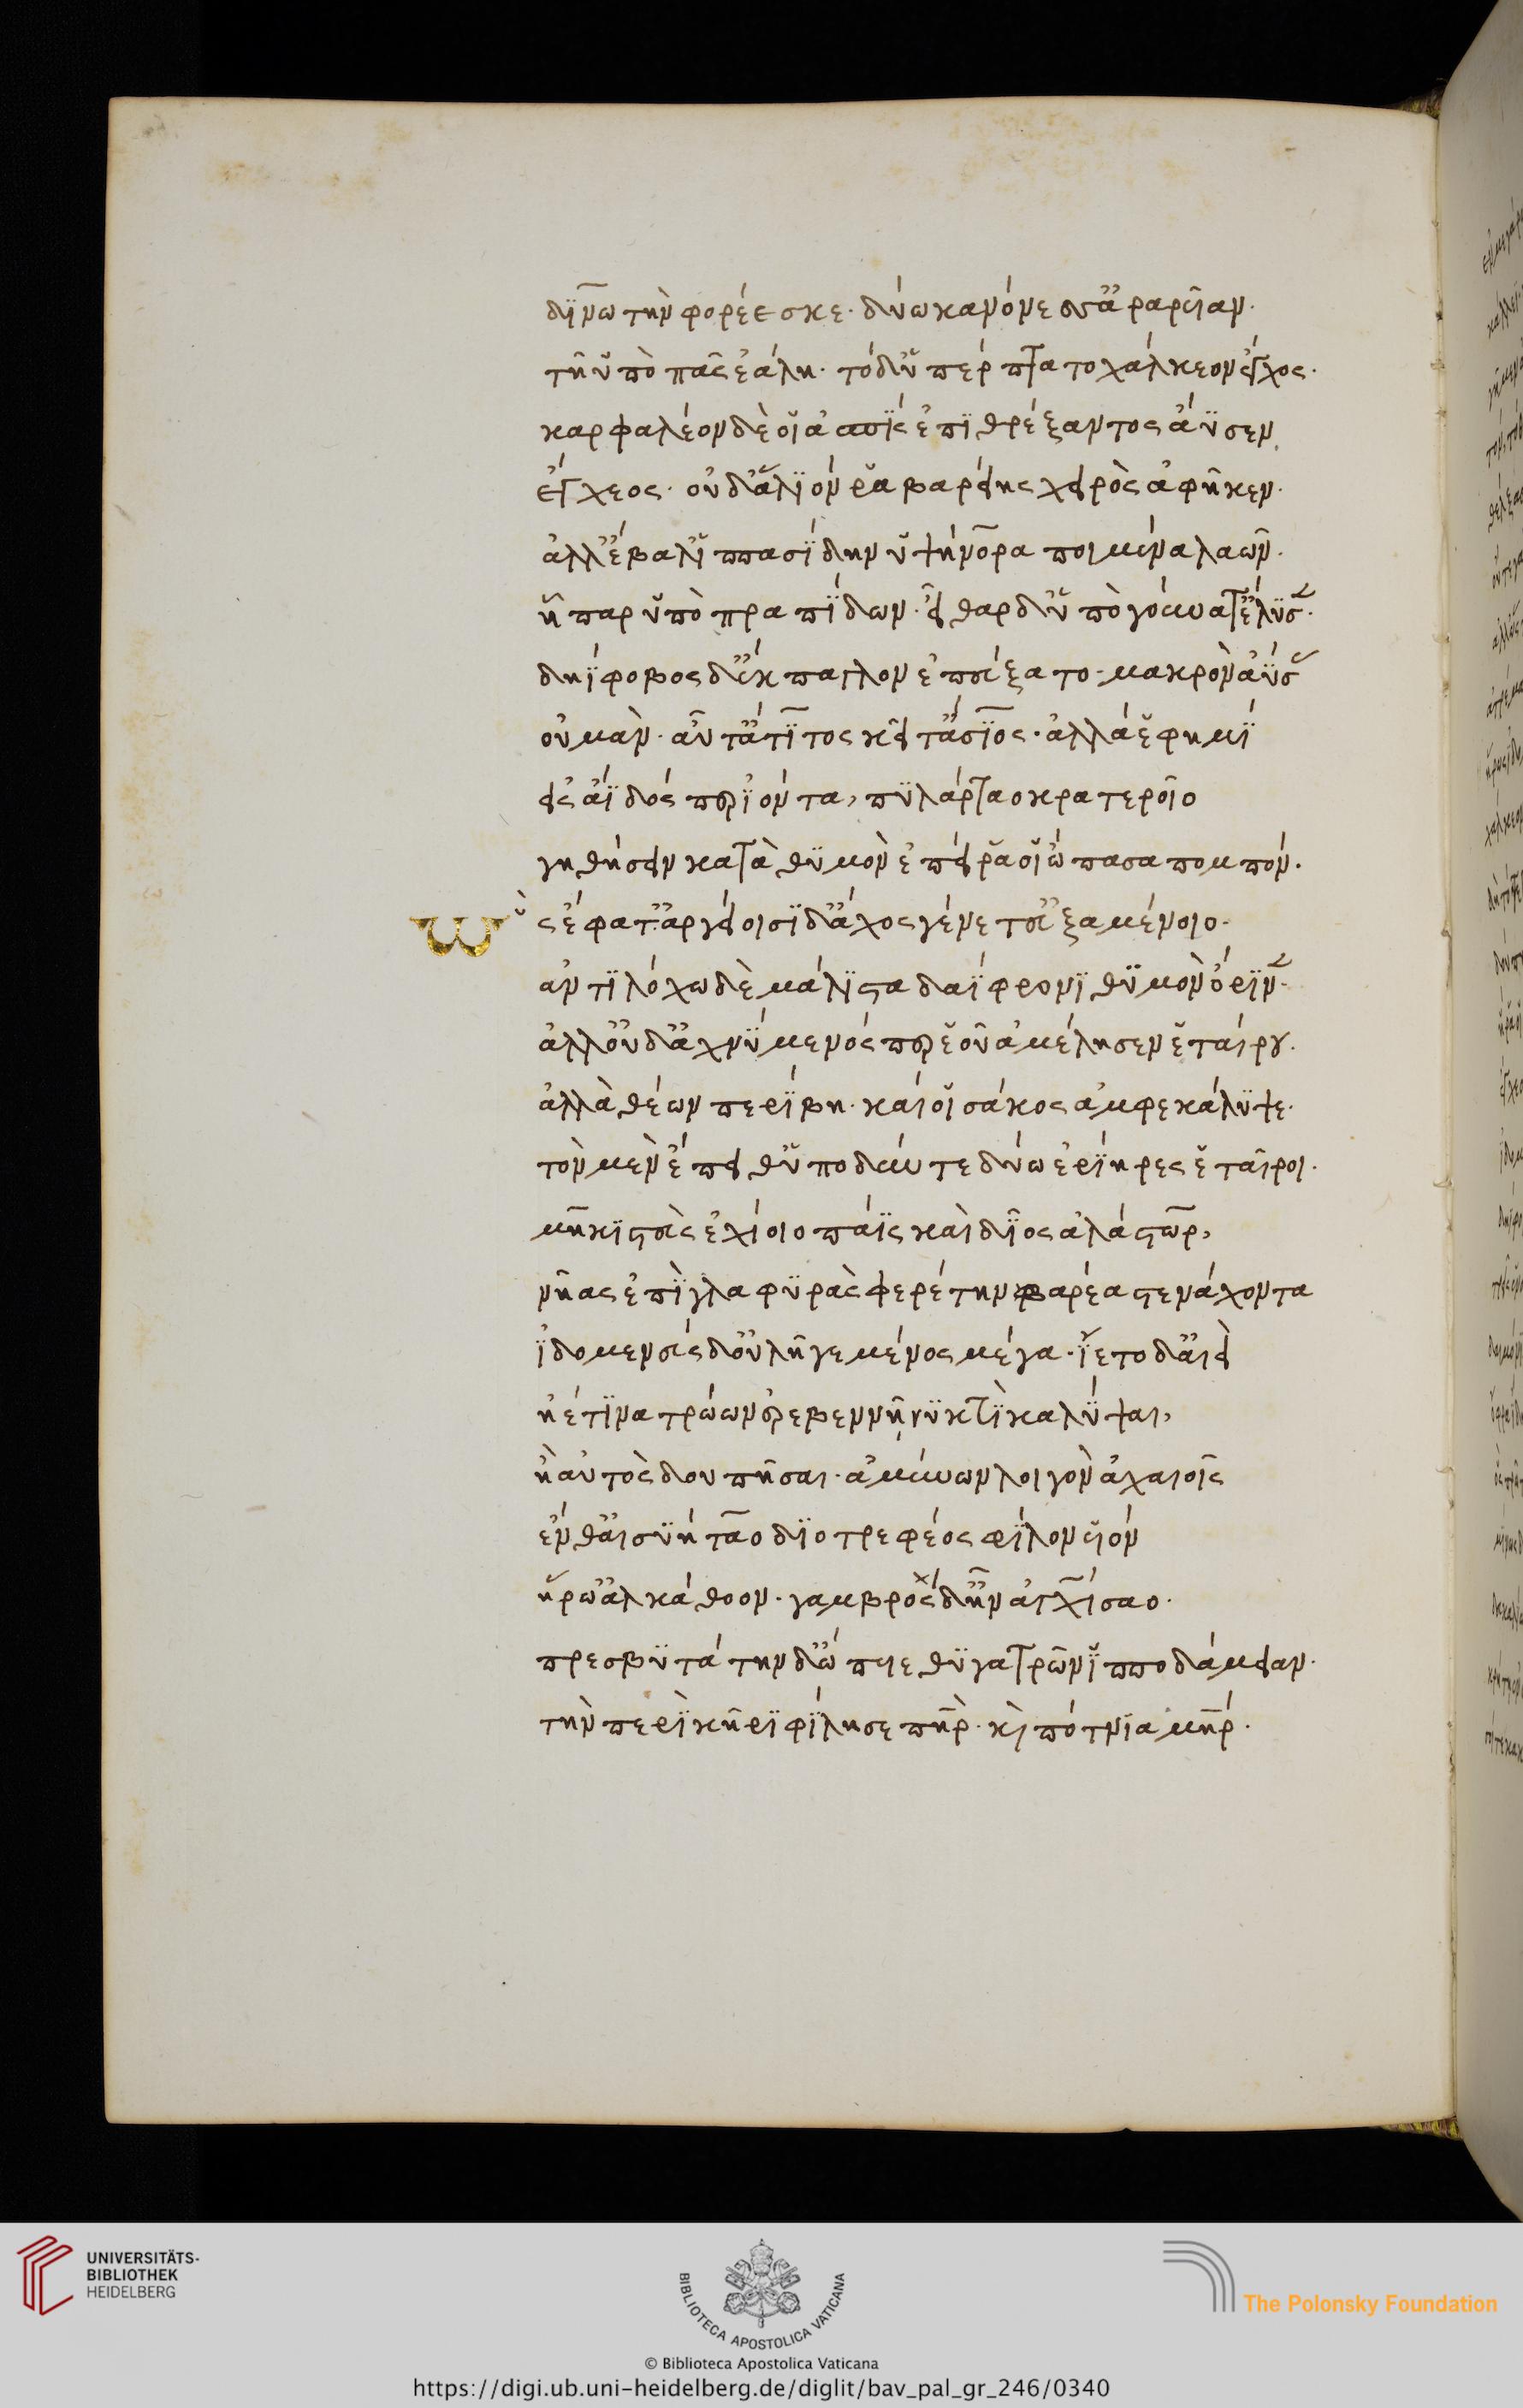 δινωτὴν φορέεσκε· δύω κανόνεσσ' ἀραρυῖαν·
τῆ ὕπο πᾶς ἐάλη· τόδ' ὑπέρπτατο χάλκεον ἔγχος·
καρφαλέον δέ οἱ ἀσπὶς ἐπιθρέξαντος ἄϋσεν
ἔγχεος· οὐδ' ἅλιόν ῥα βαρείης χειρὸς ἀφῆκεν·
ἀλλ' ἔβαλ' ἱππασίδην ὑψήνορα ποιμένα λαῶν·
ἧπαρ ὑπὸ πραπίδων· εἶθαρ δ' ὑπὸ γούνατ' ἔλυσε·
δηίφοβος δ' ἔκπαγλον ἐπεύξατο· μακρὸν ἀΰσας
οὐ μὰν· αὖτ' ἄτιτος κεῖτ' ἄσιος· ἀλλά ἕ φημι
εἰς ἄϊδός περ ἰόντα, πυλάρταο κρατεροῖο
γηθήσειν κατὰ θυμὸν ἐπεί ῥά οἱ ὤπασα πομπόν·
Ὣς ἔφατ'· ἀργείοισι δ' ἄχος γένετ' εὐξαμένοιο·
ἀντιλόχω δὲ μάλιστα δαΐφρονι θυμὸν ὄρινεν·
ἀλλ' οὐδ' ἀχνύμενός περ ἑοῦ ἀμέλησεν ἑταίρου·
ἀλλὰ θέων περίβη· καί οἱ σάκος ἀμφεκάλυψε·
τὸν μὲν ἔπειθ' ὑποδύντε δύω ἐρίηρες ἑταῖροι·
μηκιστεὺς ἐχίοιο πάϊς καὶ δῖος ἀλάστωρ,
νῆας ἐπὶ γλαφυρὰς φερέτην βαρέα στενάχοντα
ἰδομενεὺς δ' οὐ λῆγε μένος μέγα· ἵετο δ' αἰεὶ
ἠέ τινα τρώων ἐρεβεννῆ νυκτὶ καλύψαι,
ἢ αὐτὸς δουπῆσαι· ἀμύνων λοιγὸν ἀχαιοῖς
ἔνθ' αἰσυήταο διοτρεφέος φίλον υἱόν
ἥρω' ἀλκάθοον· γαμβρὸς δ' ἦν ἀγχίσαο·
πρεσβυτάτην δ' ὤπυιε θυγατρῶν ἱπποδάμειαν·
τὴν περὶ κῆρι φίλησε πατὴρ· καὶ πότνια μήτηρ·
UNIVERSITÄTS-
BIBLIOTHEK
HEIDELBERG
BIBLIOTECA APOSTOLICA VATICANA
The Polonsky Foundation
© Biblioteca Apostolica Vaticana
https://digi.ub.uni-heidelberg.de/diglit/bav_pal_gr_246/0340